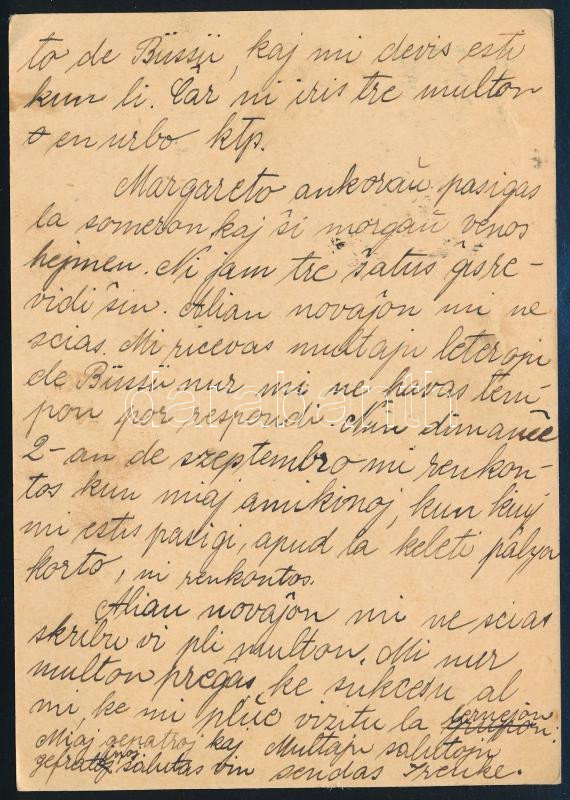 to de Büssü, kaj mi devis esti
kun li. Ĉar ni iris tre multon
en urbo ktp.
Margareto ankoraŭ pasigas
la someron kaj ŝi morgaŭ venos
hejmen. Ni jam tre ŝatus ĝisre-
vidi ŝin. Alian novaĵon mi ne
scias. Mi ricevas multajn leterojn
de Büssü nur mi ne havas tem-
pon por respondi. Nun dimanĉe
2-an de szeptembro mi renkon-
tos kun miaj amikinoj, kun kiuj
mi estis pasigi, apud la keleti pálya
korto, ni renkontos.
Alian novaĵon mi ne scias
skribu vi pli multon. Mi nur
multon preĝas, ke sukcesu al
mi, ke mi pliĉ vizitu la lernejon.
Miaj genatroj kaj Multajn saluton
gefratoj salutas vin sendas Irénke.
darabanth